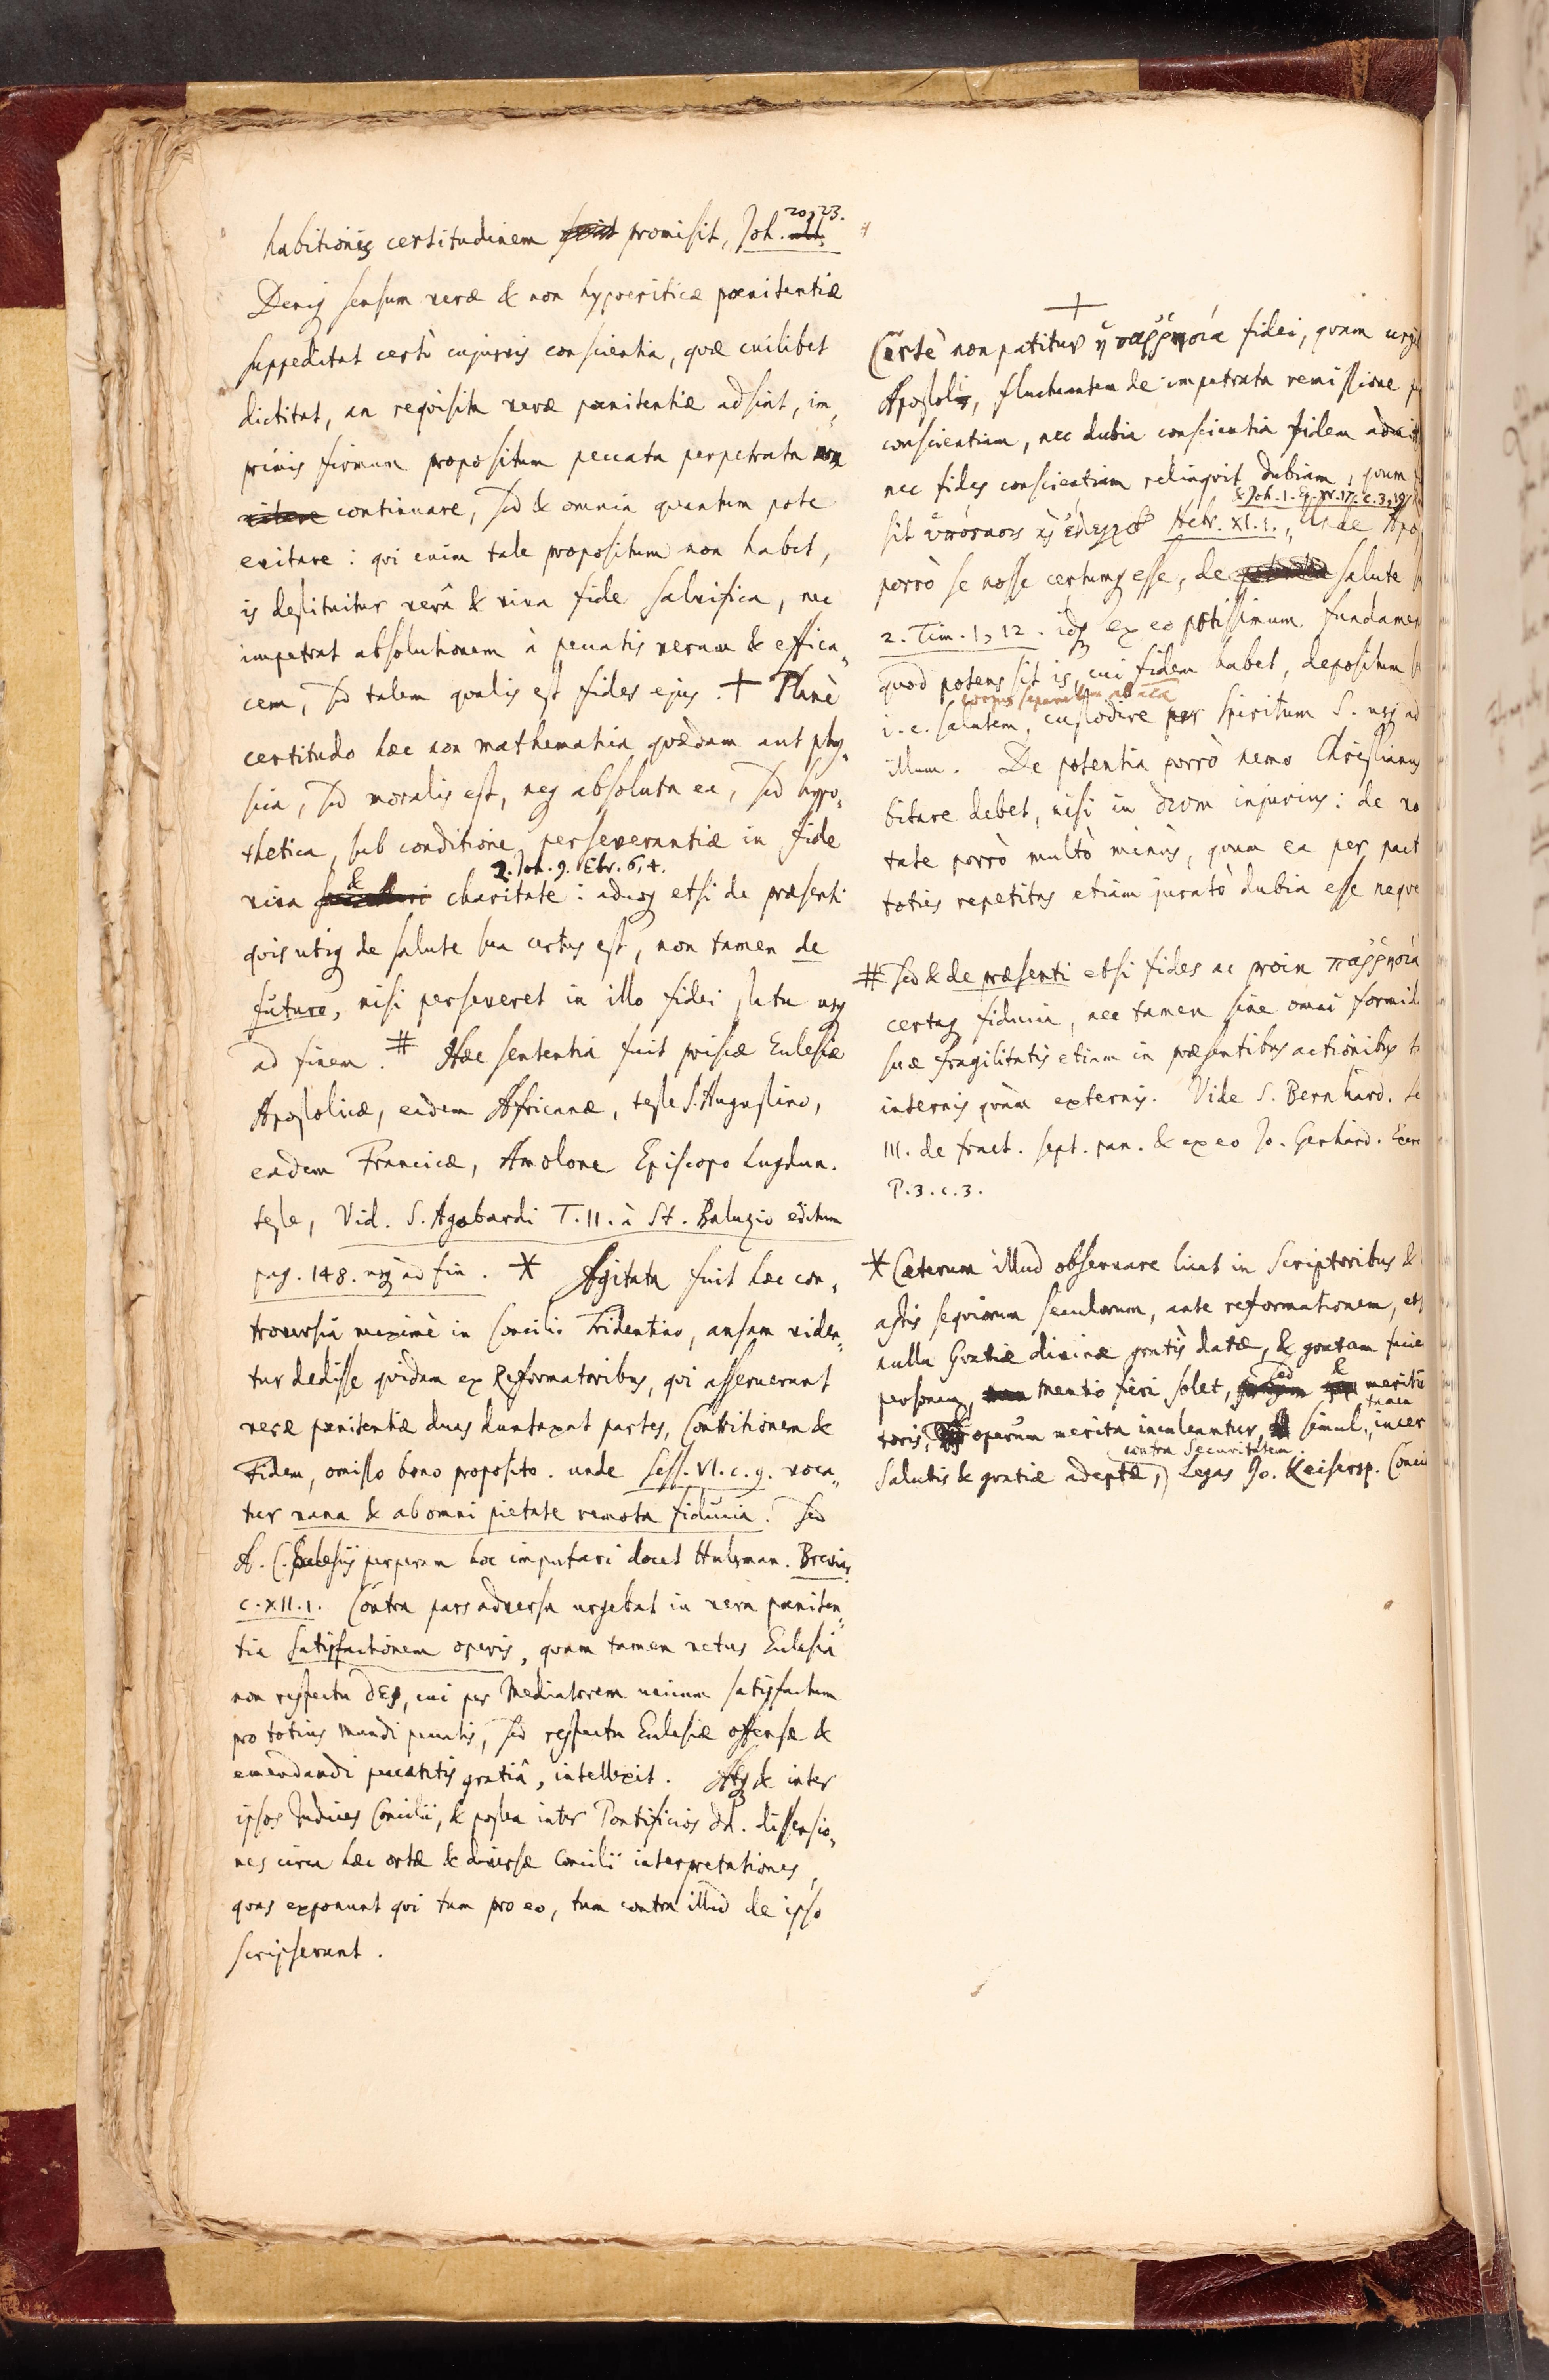 habitionis certitudinem promisit, Joh. 20, 23.
Deniq sensum veræ & non hypocriticæ pœnitentiæ
suppeditat certò cujusvis conscientia, quæ cuilibet
dictitat, an requisita veræ pœnitentiæ adsint, im„
primis firmum propositum peccata perpetrata non
vitare continuare, sed & omnia quantum pote
evitare : qvi enim tale propositum non habet,
is destituitur verâ & viva fide salvifica, nec
impetrat absolutionem à peccatis veram & effica„
cem, sed talem qualis est fides ejus. + Planè
certitudo hæc non mathematica quædam aut phy„
sica, sed moralis est, neq absoluta ea, sed hypo„
thetica, sub conditione perseverantiæ in fide
2. Joh. 9. Ebr. 6, 4.
viva & charitate : adeoq etsi de præsenti
qvis utiq de salute sua certus est, non tamen de
futuro, nisi perseveret in illo fidei statu usq
ad finem. # Hæc sententia fuit priscæ Ecclesiæ
Apostolicæ, eadem Africanæ, teste S. Augustino,
eadem Francicæ, Amolone Episcopo Lugdun.
teste, Vid. S. Agobardi T. II. à St. Baluzio editum
pag. 148. usq ad fin. * Agitata fuit hæc con„
troversia maximè in Concilio Tridentino, ansam viden„
tur dedisse quidam ex Reformatoribus, qvi asseruerunt
veræ pœnitentiæ duas duntaxat partes, Contritionem &
Fidem, omisso bono proposito. unde sess. VI. c. 9. voca„
tur vana & ab omni pietate remota fiducia. Sed
A. C. Ecclesiis perperam hoc imputari docet Hulsman. Brevia„
c. XII. 1. Contra pars adversa urgebat in vera pœniten„
tia satisfactionem operis, quam tamen vetus Ecclesia
non respectu DEI, cui per Mediatorem unicum satisfactum
pro totius mundi peccatis, sed respectu Ecclesiæ offensæ &
emendandi peccantis gratiâ, intellexit. Atq & inter
ipsos Judices Concilii, & postea inter Pontificios DD. dissensio„
nes circa hæc ortæ & diversæ Concilii interpretationes,
quas exponunt qvi tum pro eo, tum contra illud de ipso
scripserunt.
+
Certè non patitur ἡ παῤῥησία fidei, quam urg
Apostolus, fluctuantem de impetrata remissione
conscientiam, nec dubia conscientia fidem admit
nec fides conscientiam relinqvit dubiam, quum
& Joh. 1. Ep. c. 3, 19
sit ὑπόστασις ἔλεγχος Hebr. XI. 1., Unde Apo
porrò se nosse certumq esse, de salute
2. Tim. 1, 12. idq ex eo potissimum fundamen
quod potens sit is, cui fidem habet, depositum
i. e. salutem, custodire per spiritum S. usq ad
illum. De potentia porrò nemo Christianus
bitare debet, nisi in DEUM injurius : de vo
tate porrò multò minùs, quum ea per pact
toties repetitas etiam juratò dubia esse neqve
# Sed & de præsenti etsi fides ac proin παῤῥησία
certaq fiducia, nec tamen sine omni formid
suæ fragilitatis etiam in præsentibus actionibus t
internis quàm externis. Vide S. Bernhard. Se
III. de fract. sept. pan. & ex eo Jo. Gerhard. Exer
P. 3. c. 3.
* Cæterum illud observare licet in Scriptoribus &
actis seqviorum seculorum, ante reformationem, ets
nulla Gratiæ divinæ gratis datæ, & gratam facie
personam, mentio fieri solet, sed & meritu
toris, operum merita inculcantur, simul tamen incer
contra securitatem
salutis & gratiæ adeptæ, Legas Jo. Keisersp. Conci